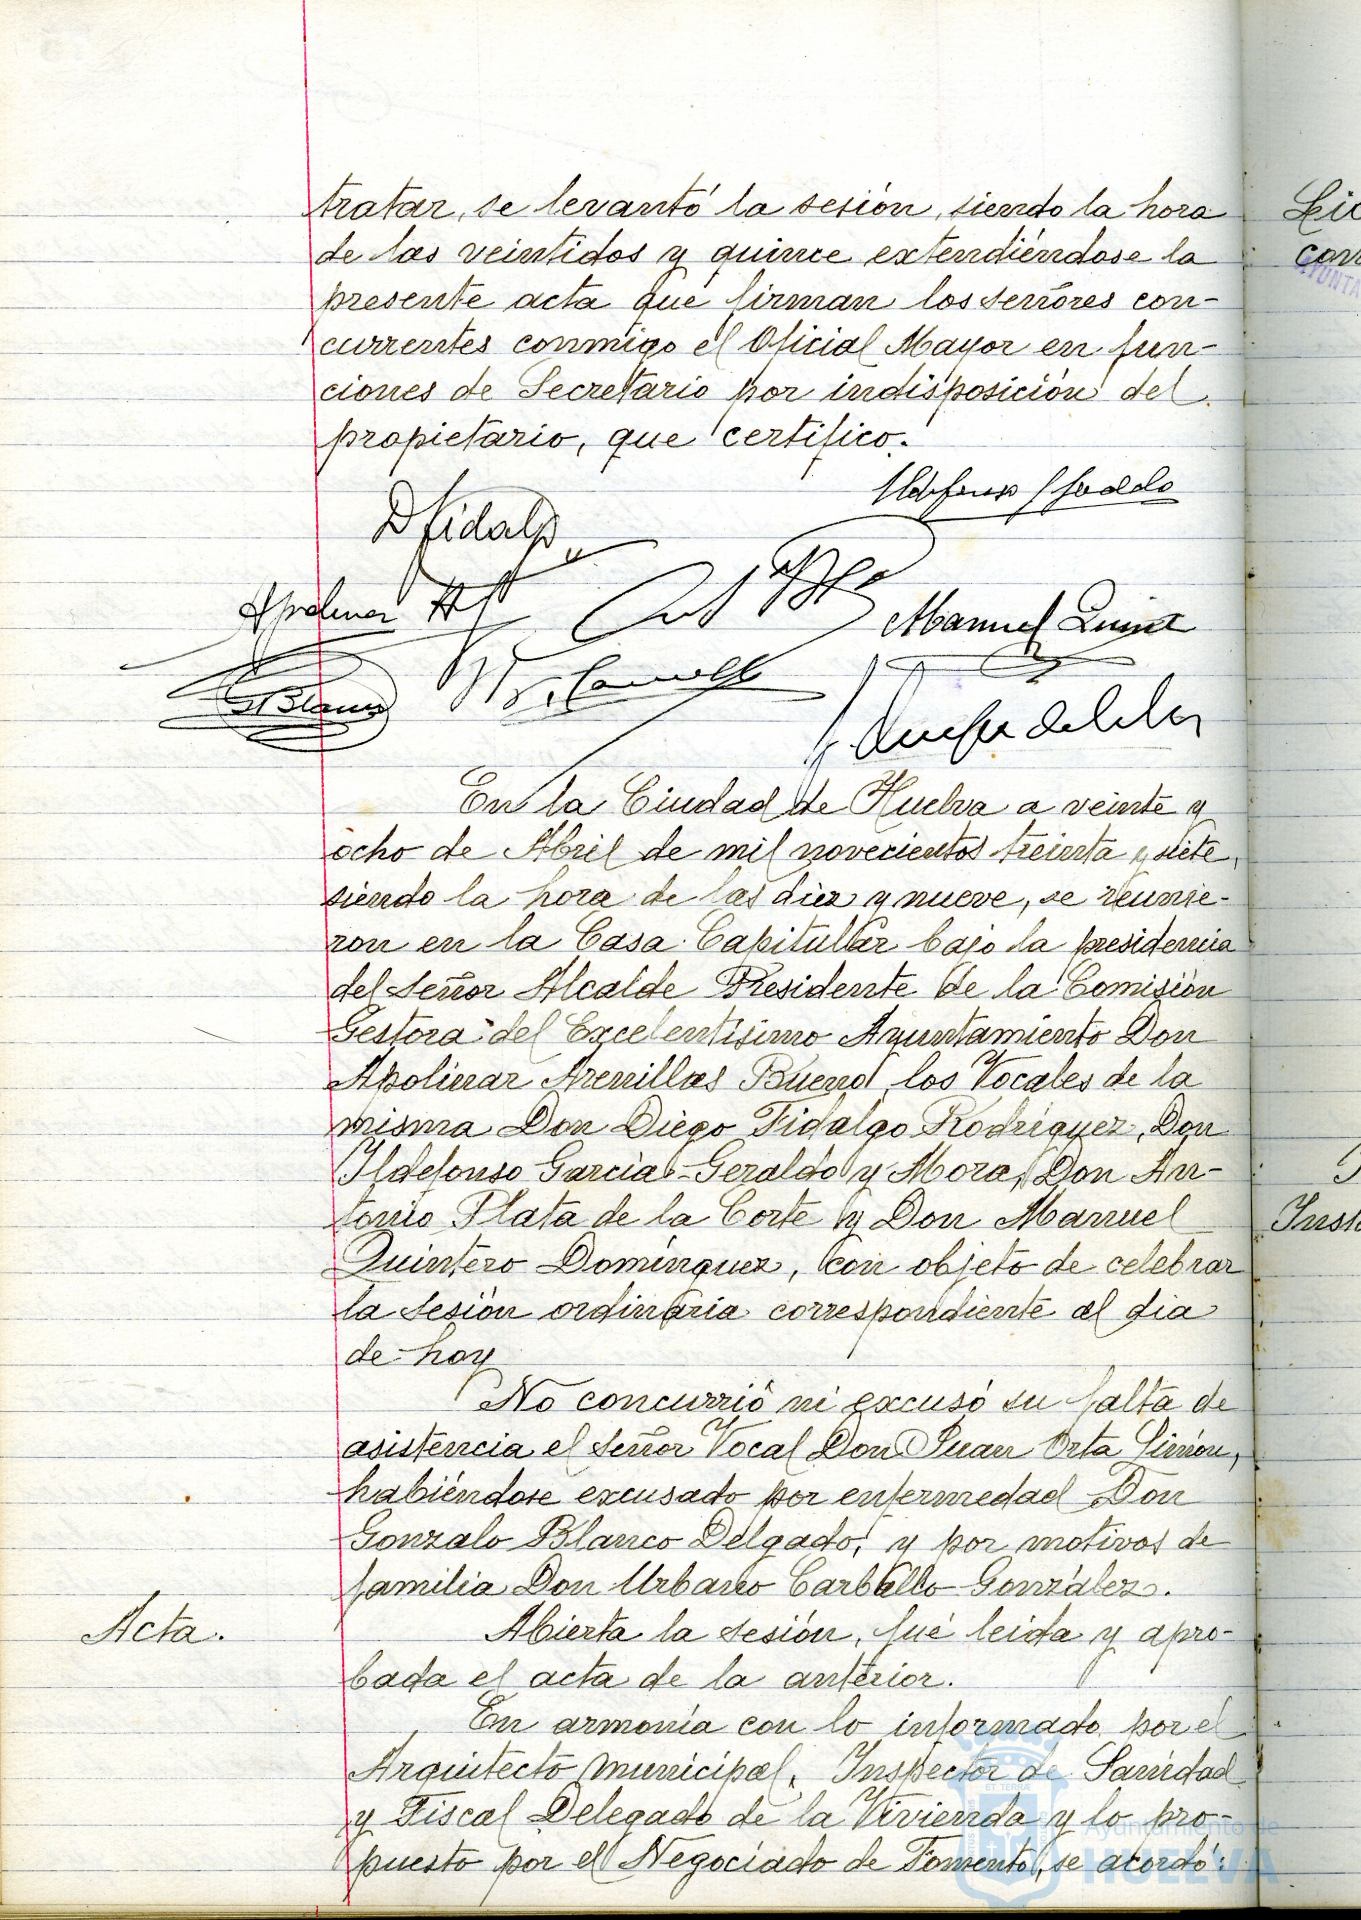 tratar, se levantó la sesión, siendo la hora
de las veintidos y quince extendiéndose la
presente acta que firman los señores con-
currentes conmigo el Oficial Mayor en fun-
ciones de Secretario por indisposición del
propietario, que certifico.
D Fidalgo
Apolinar
Manuel Quint
G Blanco
En la Ciudad de Huelva a veinte y
ocho de Abril de mil novecientos treinta y siete,
siendo la hora de las diez y nueve, se reunie-
ron en la Casa Capitular bajo la presidencia
del Señor Alcalde Presidente de la Comisión
Gestora del Excelentísimo Ayuntamiento Don
Apolinar Arenillas Bueno, los Vocales de la
misma Don Diego Fidalgo Rodríguez, Don
Ildefonso García-Geraldo y Mora, Don An-
tonio Plata de la Corte y Don Manuel
Quintero Domínguez, con objeto de celebrar
la sesión ordinaria correspondiente al dia
de hoy
No concurrió ni excusó su falta de
asistencia el Señor Vocal Don Juan Orta Simón,
habiéndose excusado por enfermedad Don
Gonzalo Blanco Delgado, y por motivos de
familia Don Urbano Carballo Gonzalez.
Acta.
Abierta la sesión, fué leida y apro-
bada el acta de la anterior.
En armonía con lo informado por el
Arquitecto municipal, Inspector de Sanidad
y Fiscal Delegado de la Vivienda y lo pro-
puesto por el Negociado de Fomento, se acordó:
Ayuntamiento de
HUELVA